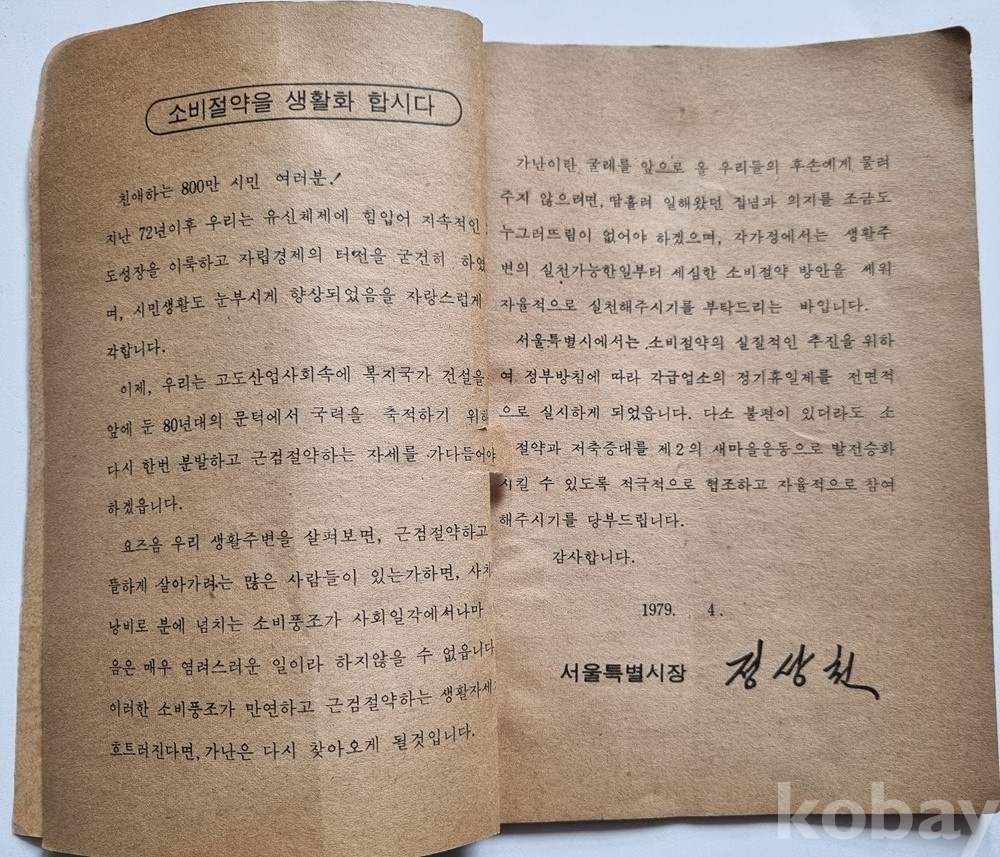 소비절약을 생활화 합시다
친애하는 800만 시민 여러분!
지난 72년이후 우리는 유신체제에 힘입어 지속적인
도성장을 이룩하고 자립경제의 터전을 굳건히 하였
며, 시민생활도 눈부시게 향상되었음을 자랑스럽게
각합니다.
이제, 우리는 고도산업사회속에 복지국가 건설을
앞에 둔 80년대의 문턱에서 국력을 축적하기 위해
다시 한번 분발하고 근검절약하는 자세를 가다듬어야
하겠읍니다.
요즈음 우리 생활주변을 살펴보면, 근검절약하고
뜰하게 살아가려는 많은 사람들이 있는가하면, 사치
낭비로 분에 넘치는 소비풍조가 사회일각에서나마
음은 매우 염려스러운 일이라 하지않을 수 없읍니다
이러한 소비풍조가 만연하고 근검절약하는 생활자세
흐트러진다면, 가난은 다시 찾아오게 될것입니다.
가난이란 굴레를 앞으로 올 우리들의 후손에게 물려
주지 않으려면, 땀흘려 일해왔던 집념과 의지를 조금도
누그러뜨림이 없어야 하겠으며, 각가정에서는 생활주
변의 실천가능한일부터 세심한 소비절약 방안을 세워
자율적으로 실천해주시기를 부탁드리는 바입니다.
서울특별시에서는 소비절약의 실질적인 추진을 위하
여 정부방침에 따라 각급업소의 정기휴일제를 전면적
으로 실시하게 되었읍니다. 다소 불편이 있더라도 소
절약과 저축증대를 제2의 새마을운동으로 발전승화
시킬 수 있도록 적극적으로 협조하고 자율적으로 참여
해주시기를 당부드립니다.
감사합니다.
1979. 4.
서울특별시장 정상천
kobay